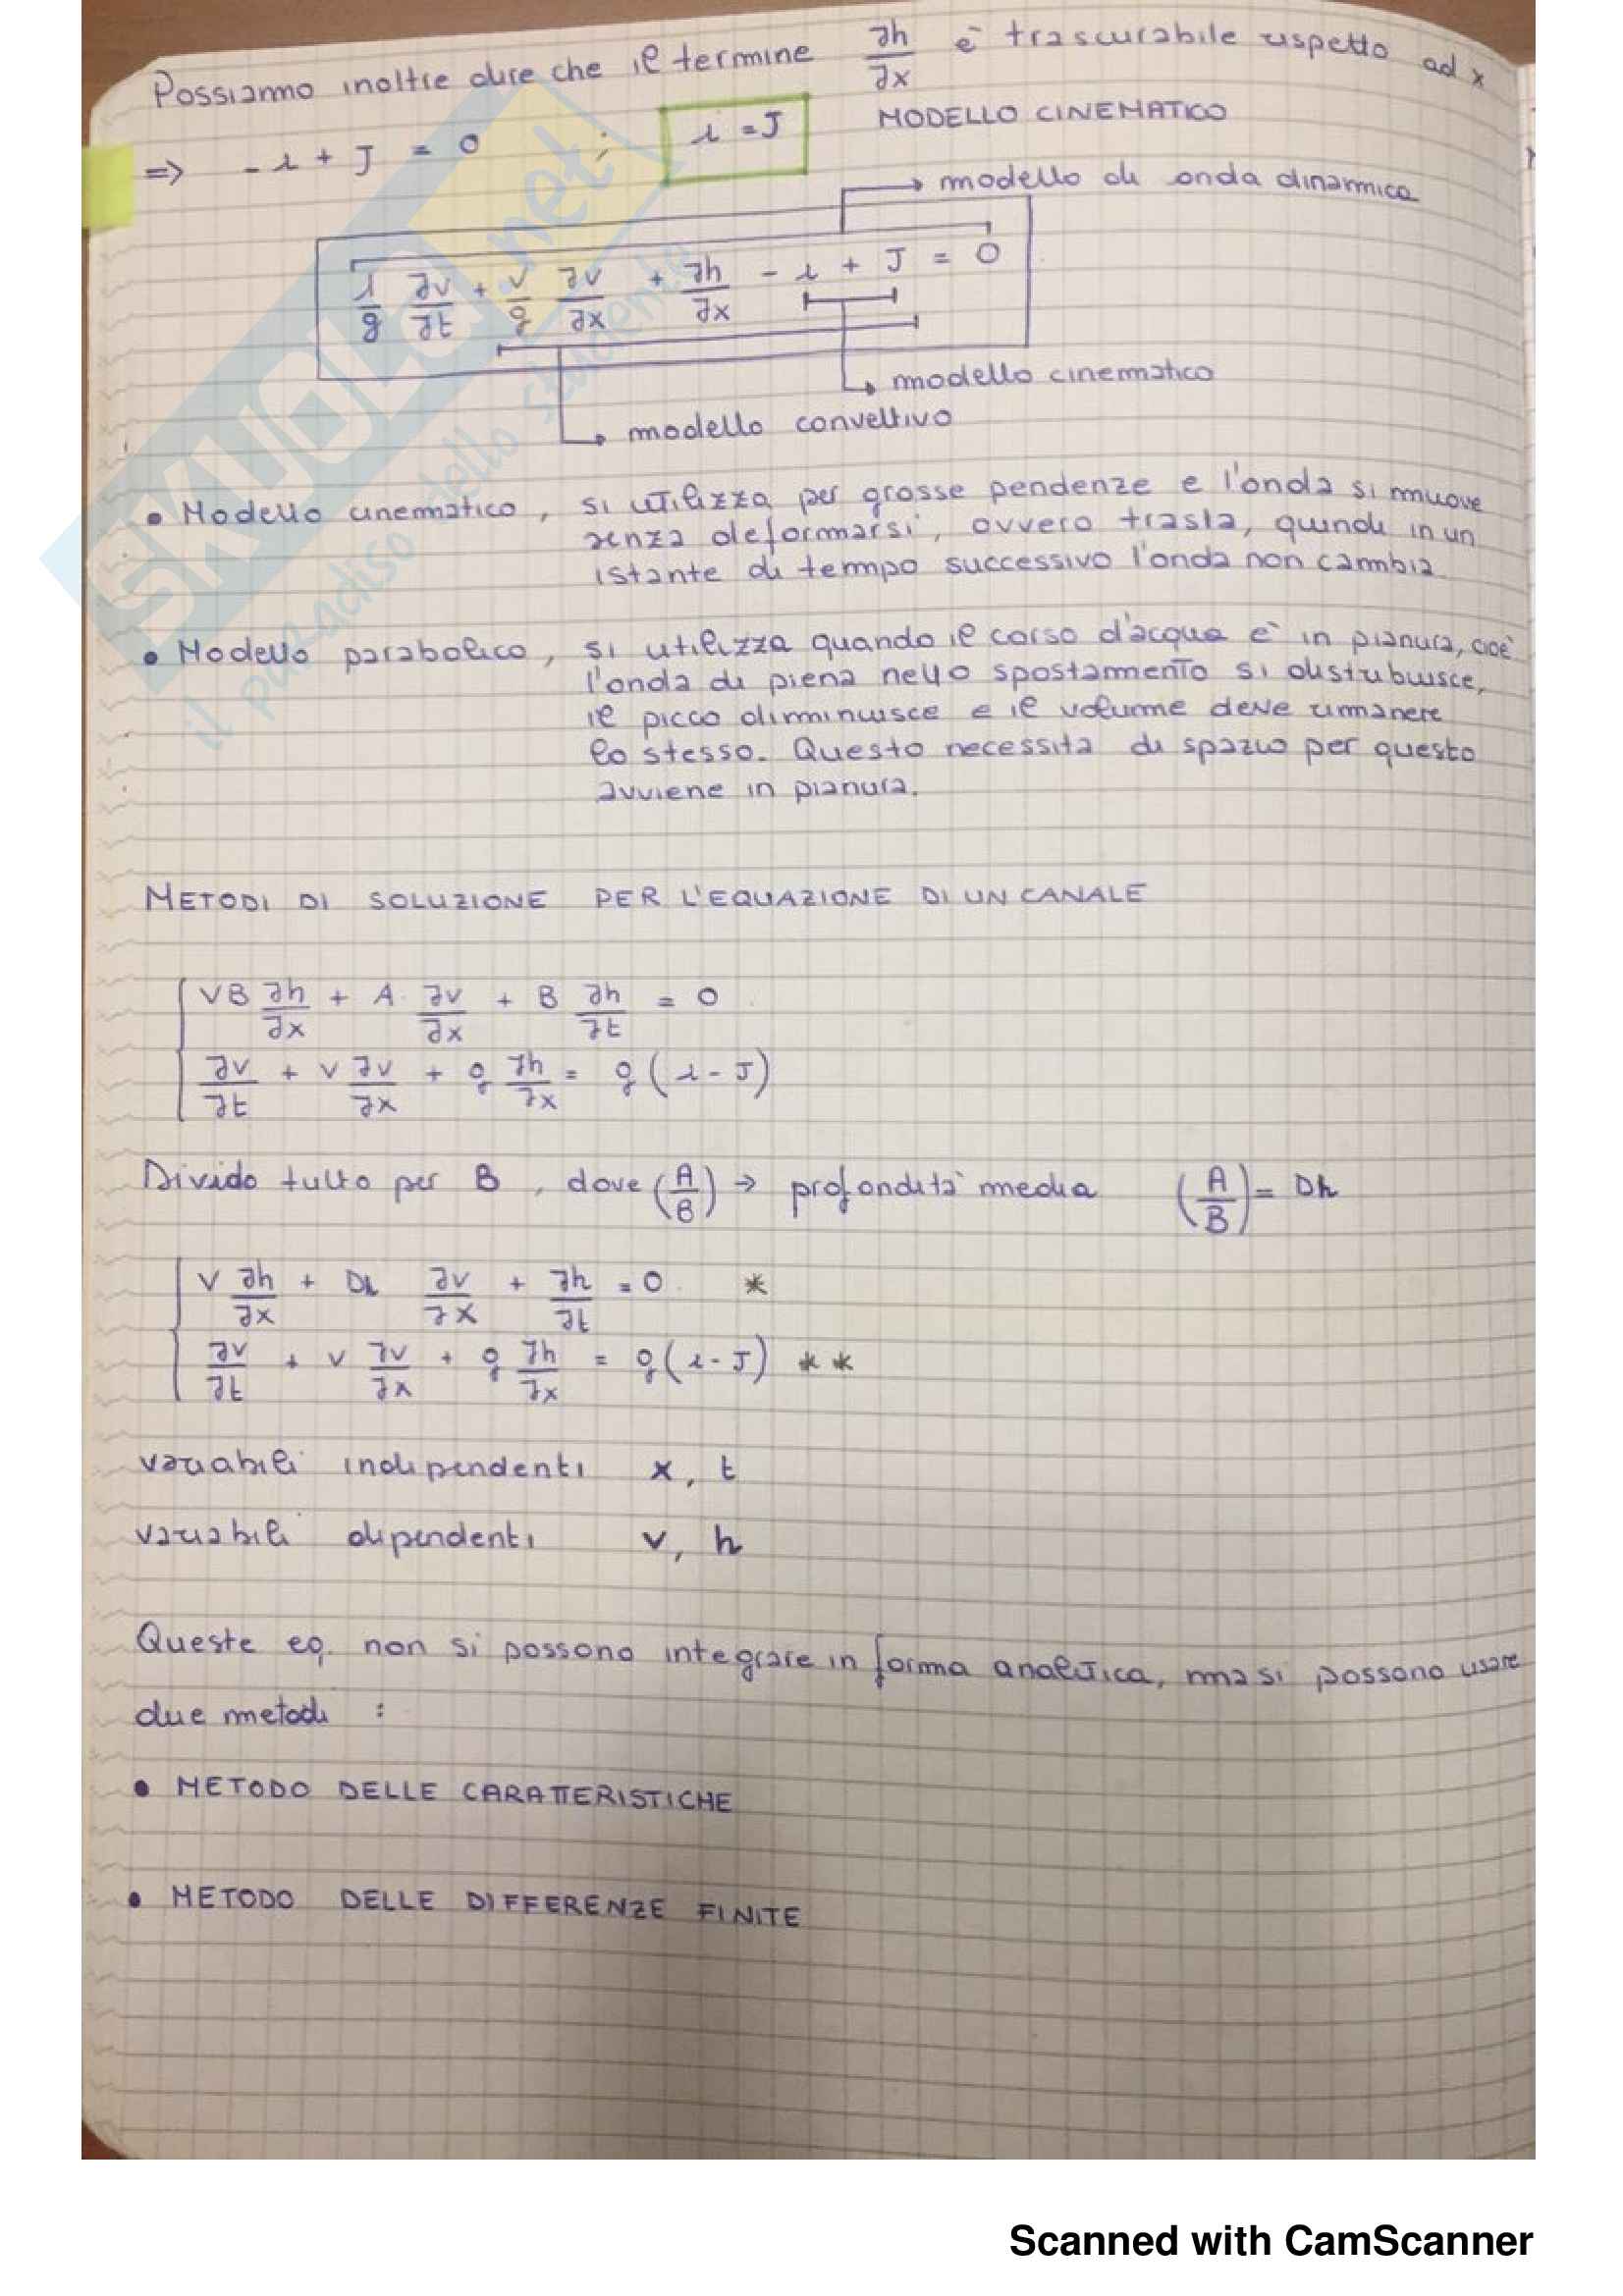 Possiamo inoltre dire che il termine ∂h/∂x è trascurabile rispetto ad x
=> - i + J = 0 ; i = J MODELLO CINEMATICO
modello di onda dinamica
1/g ∂v/∂t + v/g ∂v/∂x + ∂h/∂x - i + J = 0
modello cinematico
modello convettivo
• Modello cinematico, si utilizza per grosse pendenze e l'onda si muove
senza deformarsi, ovvero trasla, quindi in un
istante di tempo successivo l'onda non cambia
• Modello parabolico, si utilizza quando il corso d'acqua è in pianura, cioè
l'onda di piena nello spostamento si distribuisce,
il picco diminuisce e il volume deve rimanere
lo stesso. Questo necessita di spazio per questo
avviene in pianura.
METODI DI SOLUZIONE PER L'EQUAZIONE DI UN CANALE
VB ∂h/∂x + A · ∂v/∂x + B ∂h/∂t = 0
∂v/∂t + v ∂v/∂x + g ∂h/∂x = g (i - J)
Divido tutto per B, dove (A/B) → profondità media (A/B) = Dh
V ∂h/∂x + Dh ∂v/∂x + ∂h/∂t = 0 *
∂v/∂t + v ∂v/∂x + g ∂h/∂x = g (i - J) **
variabili indipendenti x, t
variabili dipendenti v, h
Queste eq. non si possono integrare in forma analitica, ma si possono usare
due metodi :
• METODO DELLE CARATTERISTICHE
• METODO DELLE DIFFERENZE FINITE
SKUOLA.net
il paradiso dello studente
Scanned with CamScanner